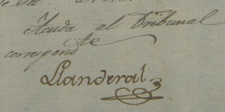 Acuda al Tribunal
correspond.te
Llanderal